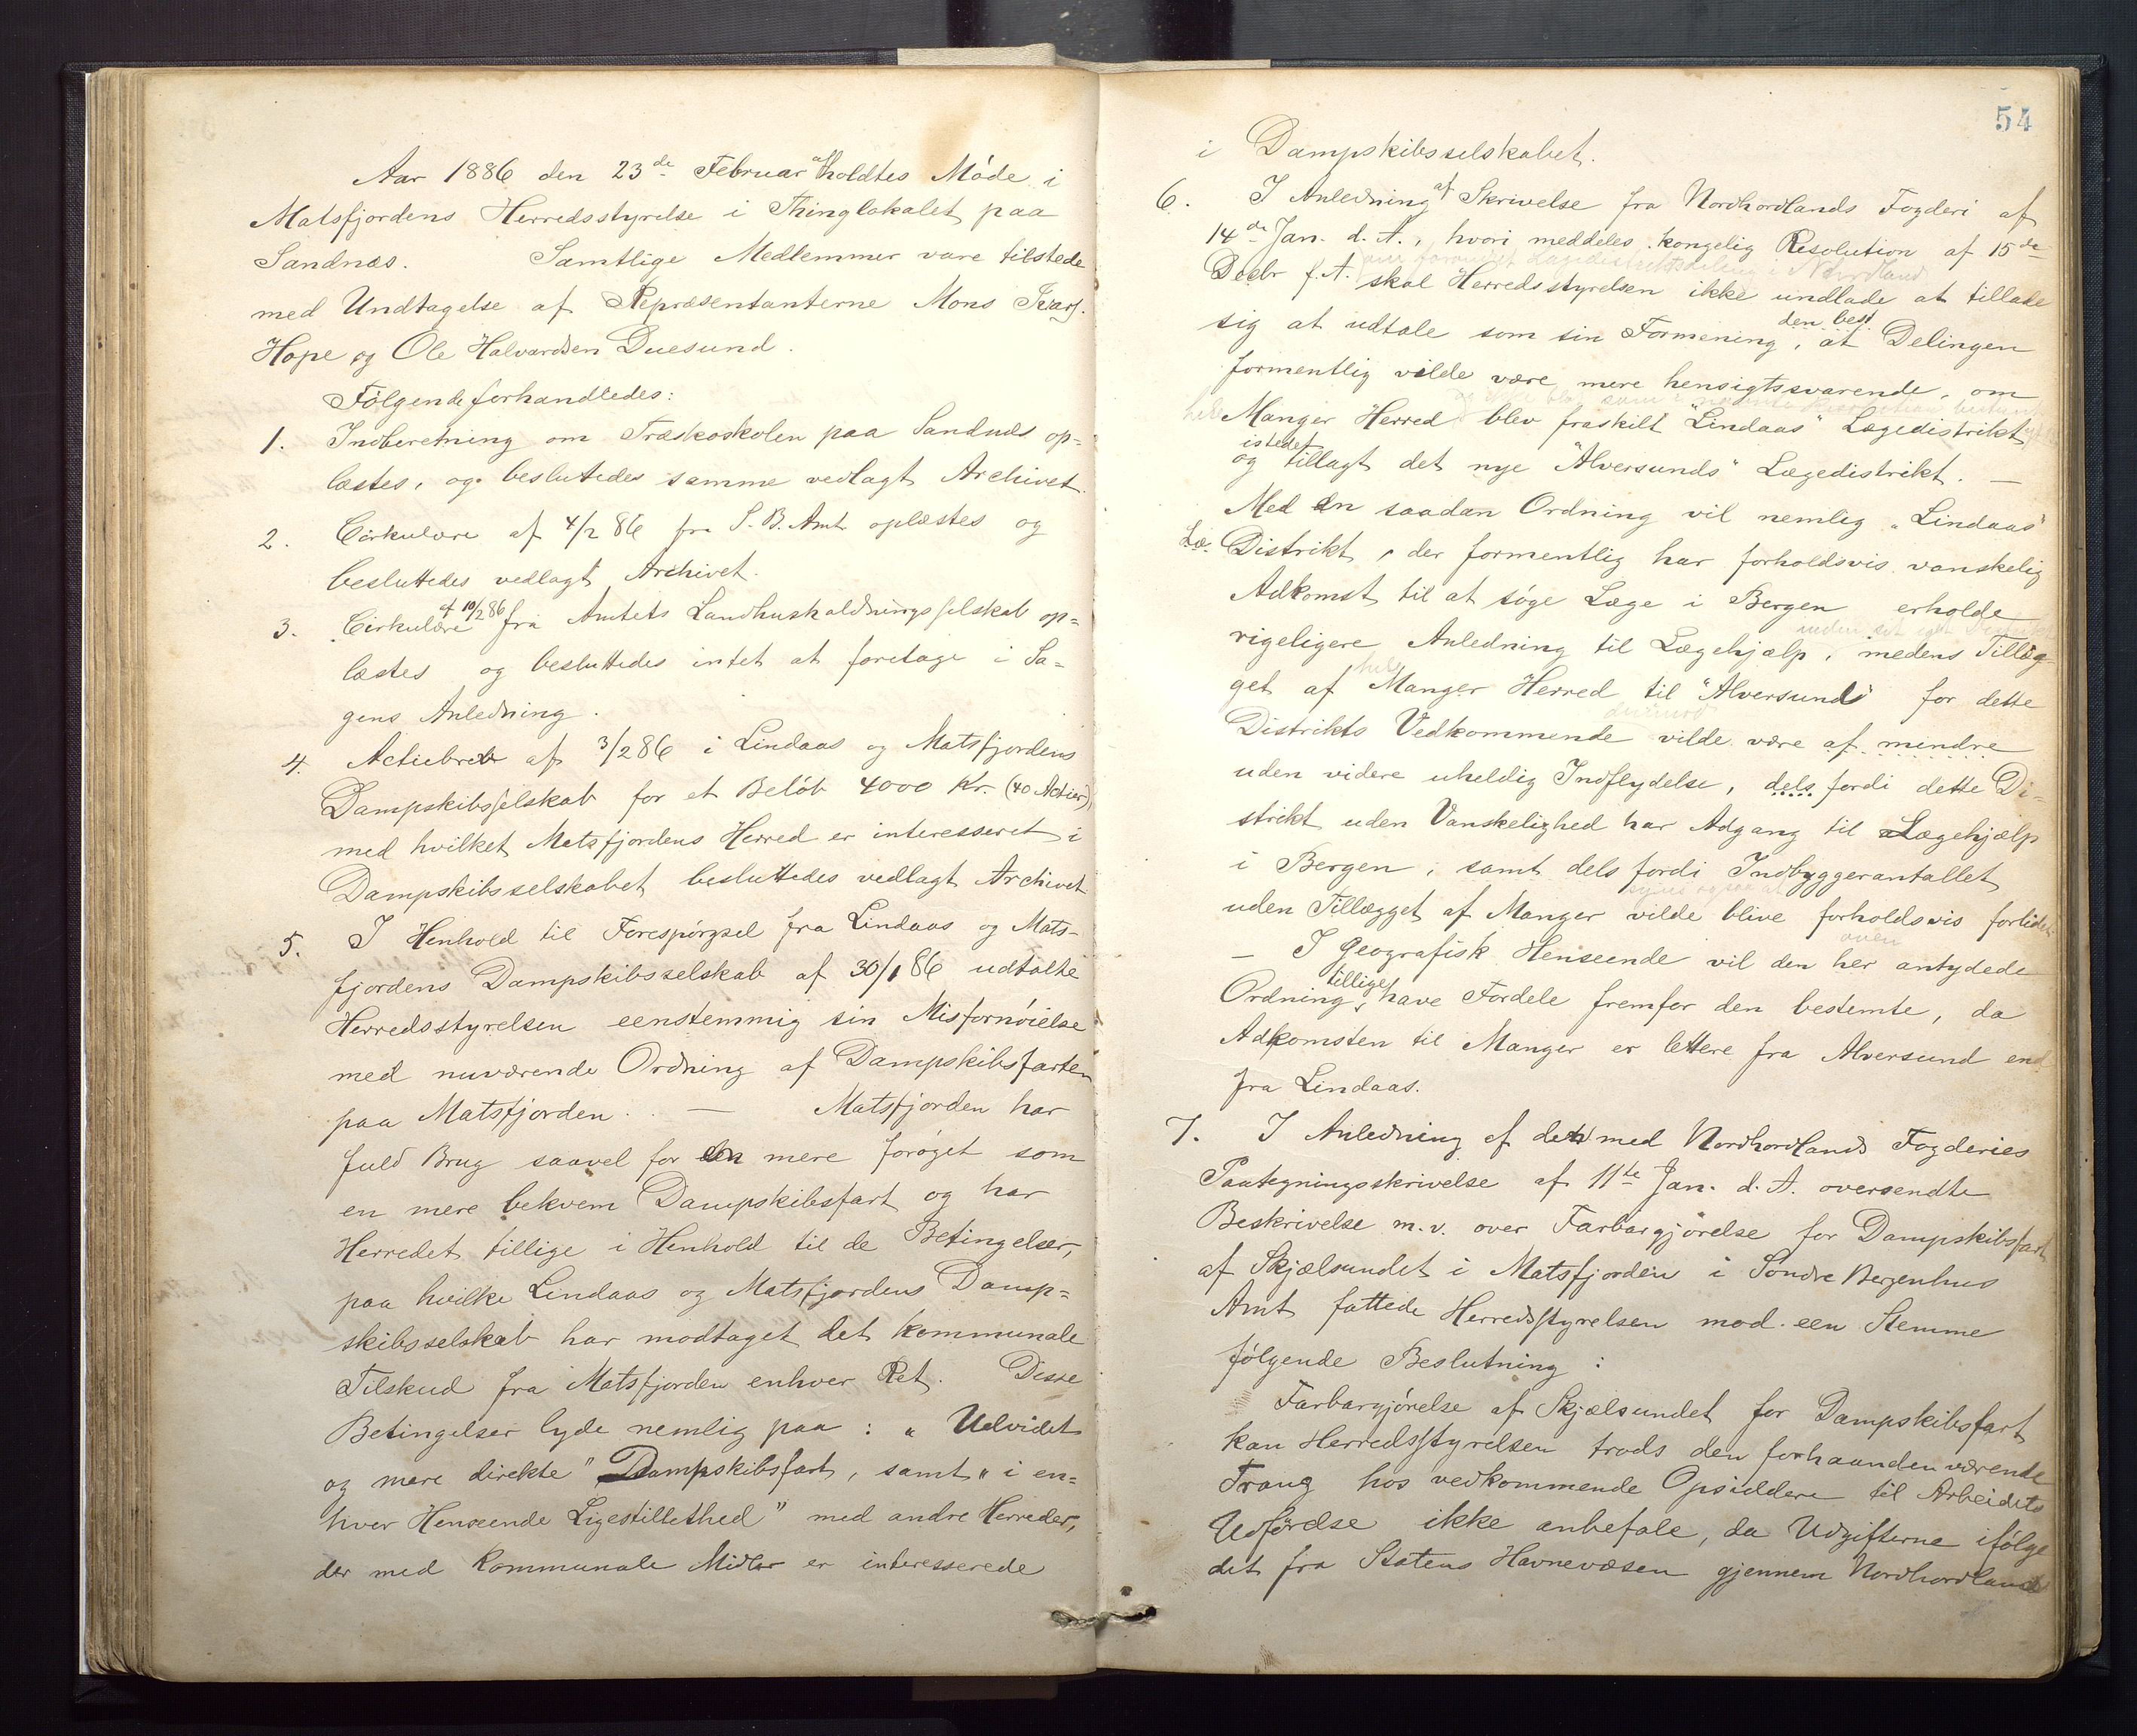 Aar 1886 den 23de Februar afholdtes Møde i
Matsfjordens Herredsstyrelse i Thinglokalet paa
Sandnæs. Samtlige Medlemmer vare tilstede
med Undtagelse af Repræsentanterne Mons
Hope og Ole Halvardsen Duesund.
Følgende forhandledes:
1. Indberetning om Træskoskolen paa Sandnæs op-
læstes, og besluttedes samme vedlagt Archivet.
2. Cirkulære af 4/2 86 fra S. B. Amt oplæstes og
besluttedes vedlagt Archivet.
3. Cirkulære af 10/2 86 fra Amtets Landhusholdningsselskab op=
læstes og besluttedes intet at foretage i Sa=
gens Anledning.
4. Actiebrev af 3/2 86 i Lindaas og Matsfjordens
Dampskibsselskab for et Beløb 4000 Kr. (40 Actier),
med hvilket Matsfjordens Herred er interesseret i
Dampskibsselskabet besluttedes vedlagt Archivet
5. I Henhold til Forespørgsel fra Lindaas og Mats-
fjordens Dampskibsselskab af 30/1 86 udtalte
Herredsstyrelsen eenstemmig sin Misfornøielse
med nuværende Ordning af Dampskibsfarten
paa Matsfjorden. — Matsfjorden har
fuld Brug saavel for en mere forøget som
en mere bekvem Dampskibsfart og har
Herredet tillige i Henhold til de Betingelser,
paa hvilke Lindaas og Matsfjordens Damp=
skibsselskab har modtaget det kommunale
Tilskud fra Matsfjorden enhver Ret. Disse
Betingelser lyde nemlig paa: „Udvidet
og mere direkte" Dampskibsfart, samt „i en=
hver Henseende Ligestillethed" med andre Herreder,
der med kommunale Midler er interesserede
54
i Dampskibsselskabet.
6. I Anledning af Skrivelse fra Nordhordlands Fogderi af
14de Jan. d. A., hvori meddeles kongelig Resolution af 15de
Decbr f. A. skal Herredsstyrelsen ikke undlade at tillade
sig at udtale som sin Formening, at den best. Delingen
formentlig vilde være mere hensigtssvarende, om
hele Manger Herred blev fraskilt "Lindaas" Lægedistrikt
og istedet tillagt det nye "Alversunds" Lægedistrikt. —
Med en saadan Ordning vil nemlig „Lindaas"
Læ. Distrikt, der formentlig har forholdsvis vanskelig
Adkomst til at søge Læge i Bergen erholde
rigeligere Anledning til Lægehjælp, medens Tillæg=
get af hele Manger Herred til "Alversund" for dette
Distrikts Vedkommende vilde være af mindre
uden videre uheldig Indflydelse, dels fordi dette Di=
strikt uden Vanskelighed har Adgang til Lægehjælp
i Bergen, samt dels fordi Indbyggerantallet
uden Tillægget af Manger vilde blive forholdsvis forlidet.
— I Geografisk Henseende vil den her antydede
Ordning tillige have Fordele fremfor den bestemte, da
Adkomsten til Manger er lettere fra Alversund end
fra Lindaas.
7. I Anledning af den med Nordhordlands Fogderies
Paategningsskrivelse af 11te Jan. d. A. oversendte
Beskrivelse m. v. over Farbargjørelse for Dampskibsfart
af Skjælsundet i Matsfjorden i Søndre Bergenhus
Amt fattede Herredsstyrelsen mod een Stemme
følgende Beslutning:
Farbargjørelse af Skjælsundet for Dampskibsfart
kan Herredsstyrelsen trods den forhaandenværende
Trang hos vedkommende Opsiddere til Arbeidets
Udførelse ikke anbefale, da Udgifterne ifølge
det fra Statens Havnevæsen gjennem Nordhordlands